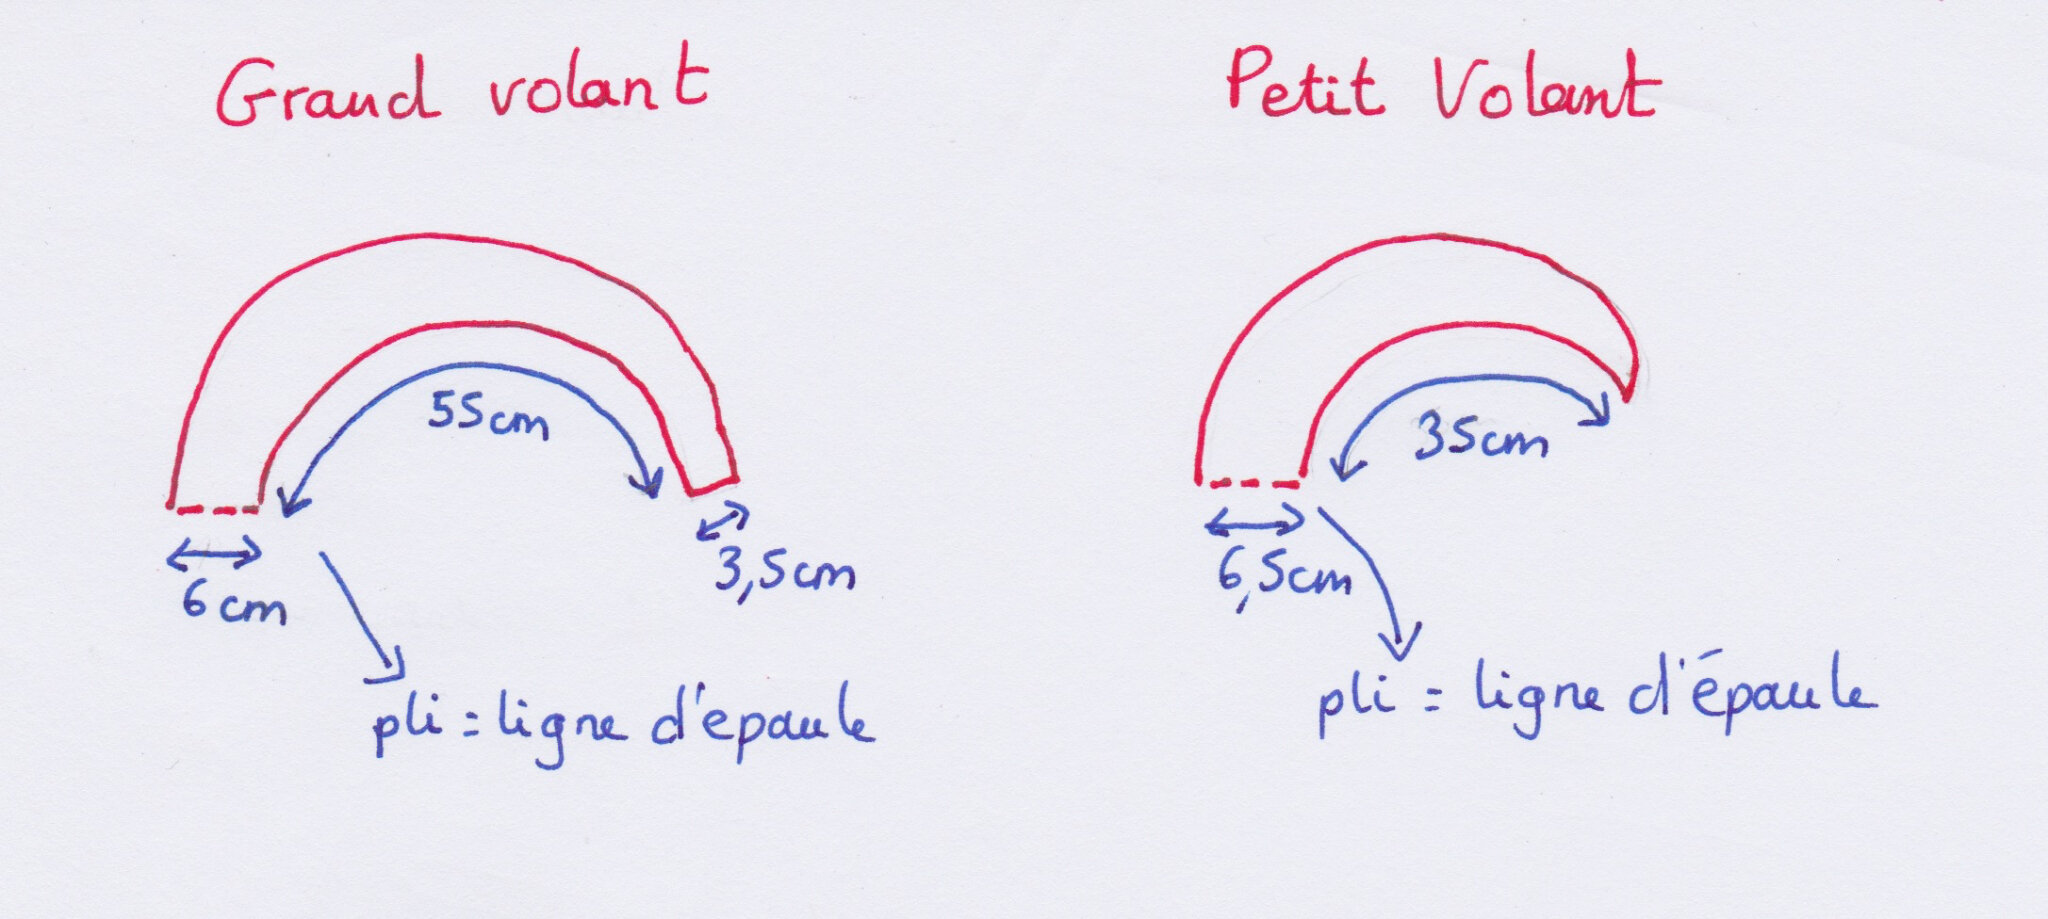 Grand volant
Petit Volant
55cm
35cm
6cm
3,5cm
6,5cm
pli = ligne d'epaule
pli = ligne d'épaule